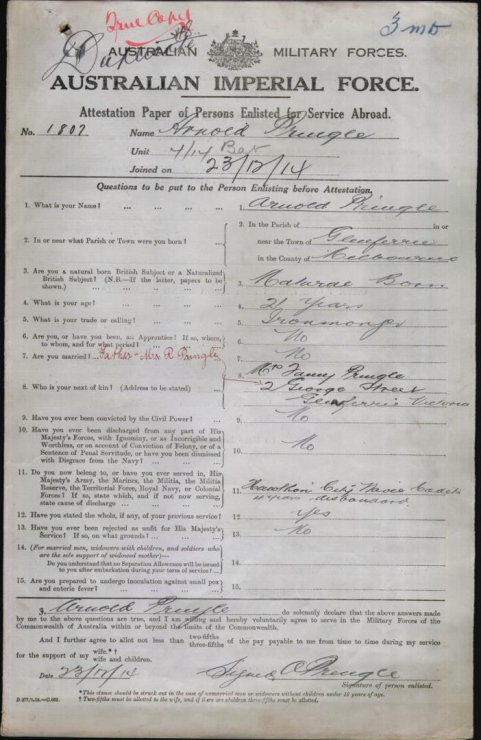 True Copy
3 mb
Duplicate
AUSTRALIAN MILITARY FORCES.
AUSTRALIAN IMPERIAL FORCE.
Attestation Paper of Persons Enlisted for Service Abroad.
No. 1807 Name Arnold Pringle
Unit 4/14 Bat
Joined on 23/12/14
Questions to be put to the Person Enlisting before Attestation.
1. What is your Name? ... ... ... ... 1. Arnold Pringle
2. In or near what Parish or Town were you born? ... 2. In the Parish of in or
near the Town of Glenferrie
in the County of Melbourne
3. Are you a natural born British Subject or a Naturalized
British Subject? (N.B.—If the latter, papers to be
shown.) ... ... ... ... 3. Natural Born
4. What is your age? ... ... ... ... 4. 21 years
5. What is your trade or calling? ... ... ... 5. Ironmonger
6. Are you, or have you been, an Apprentice? If so, where,
to whom, and for what period? ... ... 6. No
7. Are you married? ... Father - Mr R Pringle 7. No
8. Who is your next of kin? (Address to be stated) ... 8. Mrs Fanny Pringle
2 George Street
Glenferrie Victoria
9. Have you ever been convicted by the Civil Power? ... 9. No
10. Have you ever been discharged from any part of His
Majesty's Forces, with Ignominy, or as Incorrigible and
Worthless, or on account of Conviction of Felony, or of a
Sentence of Penal Servitude, or have you been Dismissed
with Disgrace from the Navy? ... ... 10. No
11. Do you now belong to, or have you ever served in, His
Majesty's Army, the Marines, the Militia, the Militia
Reserve, the Territorial Force, Royal Navy, or Colonial
Forces? If so, state which, and if not now serving,
state cause of discharge ... ... ... 11. Hawthorn City Cadets
disbanded
12. Have you stated the whole, if any, of your previous service? 12. Yes
13. Have you ever been rejected as unfit for His Majesty's
Service? If so, on what grounds? ... ... 13. No
14. (For married men, widowers with children, and soldiers who
are the sole support of widowed mother)—
Do you understand that no Separation Allowance will be issued
to you after embarkation during your term of service? ... 14.
15. Are you prepared to undergo inoculation against small pox
and enteric fever? ... ... ... 15.
I, Arnold Pringle do solemnly declare that the above answers made
by me to the above questions are true, and I am willing and hereby voluntarily agree to serve in the Military Forces of the
Commonwealth of Australia within or beyond the limits of the Commonwealth.
And I further agree to allot not less than two-fifths three-fifths of the pay payable to me from time to time during my service
for the support of my wife.*†
wife and children.
Date 23/12/14 Signed A Pringle
Signature of person enlisted.
*This clause should be struck out in the case of unmarried men or widowers without children under 18 years of age.
† Two-fifths must be allotted to the wife, and if there are children three-fifths must be allotted.